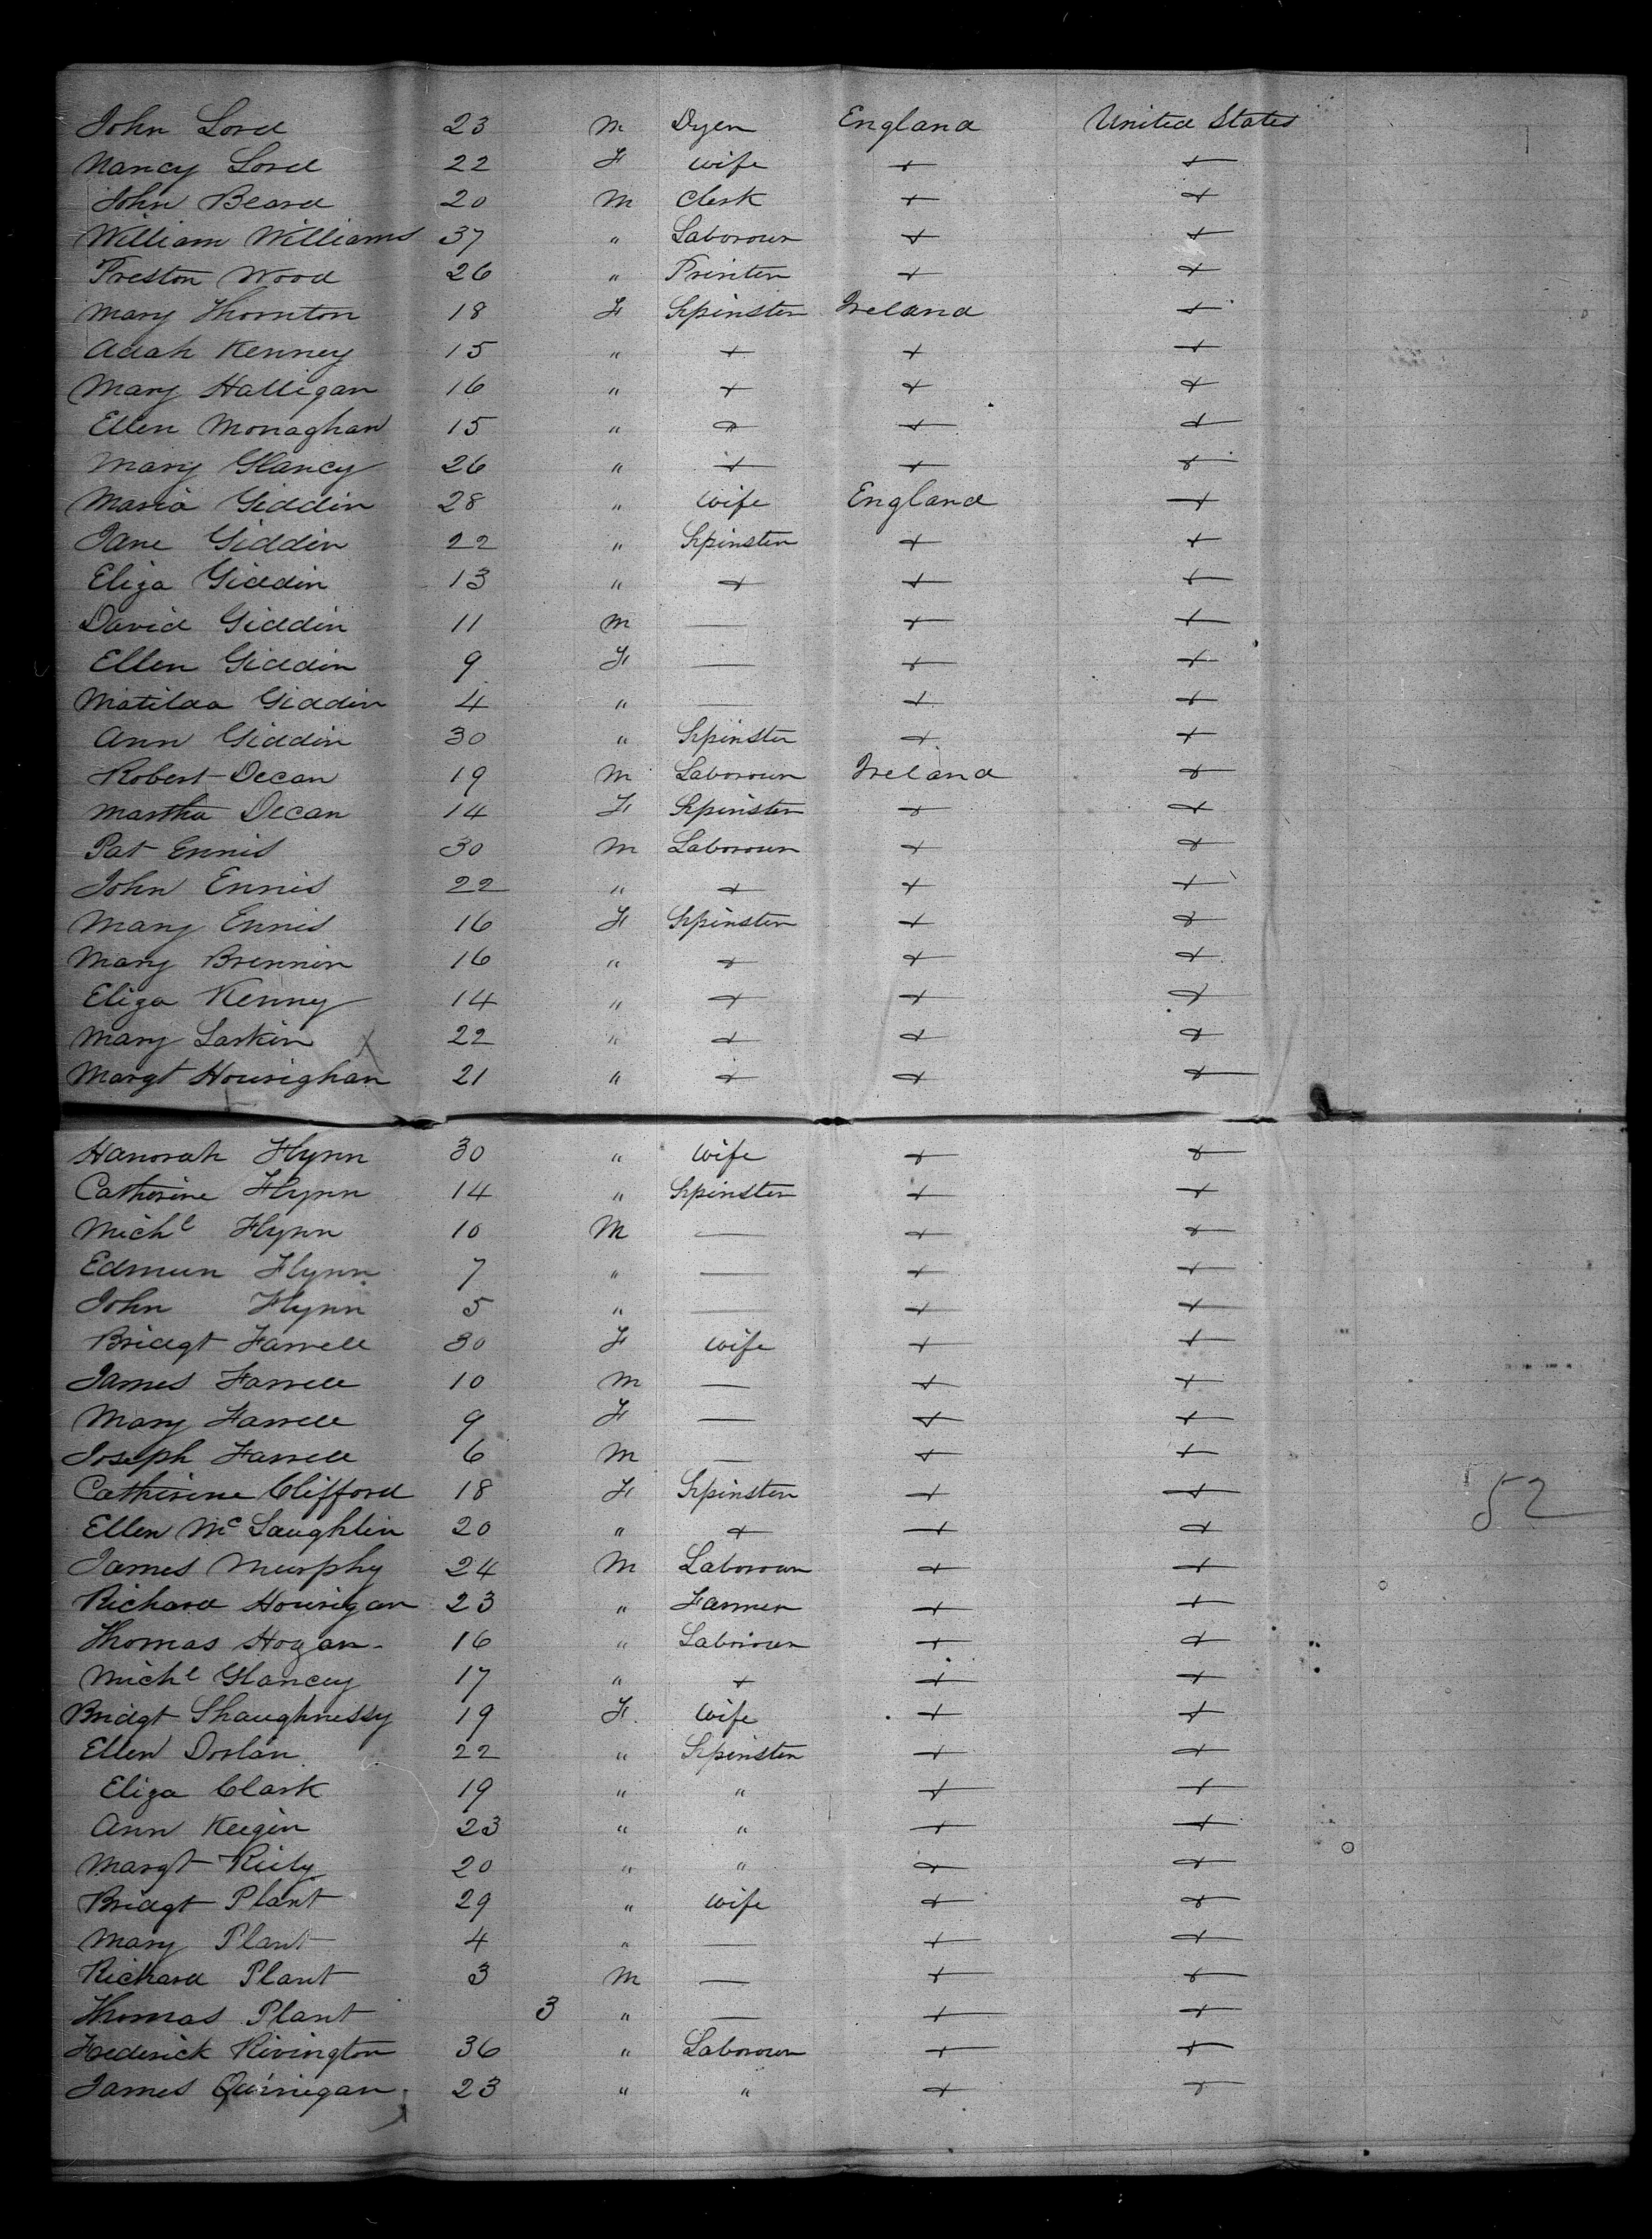 John Lord 23 M Dyer England United States
Nancy Lord 22 F wife + +
John Beard 20 M Clerk + +
William Williams 37 " Laborour + +
Preston Wood 26 " Printer + +
Mary Thornton 18 F Spinster Ireland +
Adah Kenney 15 " + + +
Mary Halligan 16 " + + +
Ellen Monaghan 15 " + + +
Mary Glancy 26 " + + +
Maria Giddin 28 " wife England +
Jane Giddin 22 " Spinster + +
Eliza Giddin 13 " + + +
David Giddin 11 M — + +
Ellen Giddin 9 F — + +
Matilda Giddin 4 " — + +
Ann Giddin 30 " Spinster + +
Robert Decan 19 M Laborour Ireland +
Martha Decan 14 F Spinster + +
Pat Ennis 30 M Laborour + +
John Ennis 22 " + + +
Mary Ennis 16 F Spinster + +
Mary Brennin 16 " + + +
Eliza Kenny 14 " + + +
Mary Larkin X 22 " + + +
Margt Hourighan 21 " + + +
Hanorah Flynn 30 " wife + +
Catherine Flynn 14 " Spinster + +
Michl Flynn 10 M — + +
Edmun Flynn 7 " — + +
John Flynn 5 " — + +
Bridgt Farrell 30 F wife + +
James Farrell 10 M — + +
Mary Farrell 9 F — + +
Joseph Farrell 6 M — + +
Catherine Clifford 18 F Spinster + +
52
Ellen McLaughlin 20 " + + +
James Murphy 24 M Laborour + +
Richard Hourigan 23 " Farmer + +
Thomas Hogan 16 " Laborour + +
Michl Glancey 17 " + + +
Bridgt Shaughnessy 19 F wife + +
Ellen Dorlan 22 " Spinster + +
Eliza Clark 19 " " + +
Ann Keegin 23 " " + +
Margt Riely 20 " " + +
Bridgt Plant 29 " wife + +
Mary Plant 4 " — + +
Richard Plant 3 M — + +
Thomas Plant 3 " — + +
Frederick Rivington 36 " Laborour + +
James Quinegan 23 " " + +